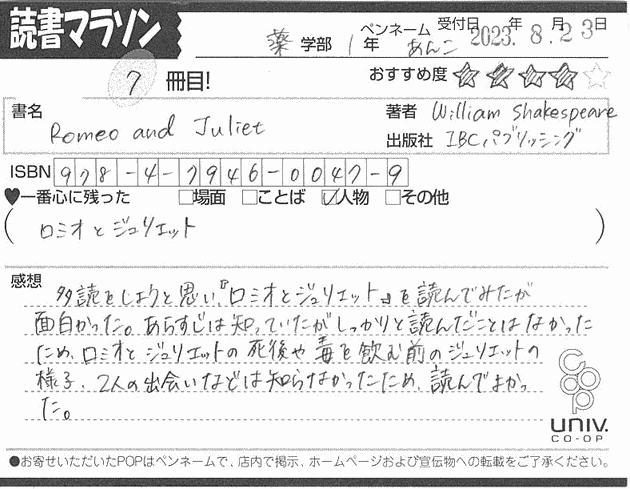 読書マラソン
薬 学部 1 年 ペンネーム あんこ 受付日 2023年 8月 23日
7 冊目! おすすめ度 ★★★★☆
書名 Romeo and Juliet
著者 William Shakespeare
出版社 IBCパブリッシング
ISBN 978-4-7946-0047-9
♥一番心に残った □場面 □ことば ☑人物 □その他
( ロミオとジュリエット )
感想
多読をしようと思い、『ロミオとジュリエット』を読んでみたが
面白かった。あらすじは知っていたがしっかりと読んだことはなかった
ため、ロミオとジュリエットの死後や毒を飲む前のジュリエットの
様子、2人の出会いなどは知らなかったため、読んでよかっ
た。
coop
UNIV.
CO-OP
●お寄せいただいたPOPはペンネームで、店内で掲示、ホームページおよび宣伝物への転載をご了承ください。